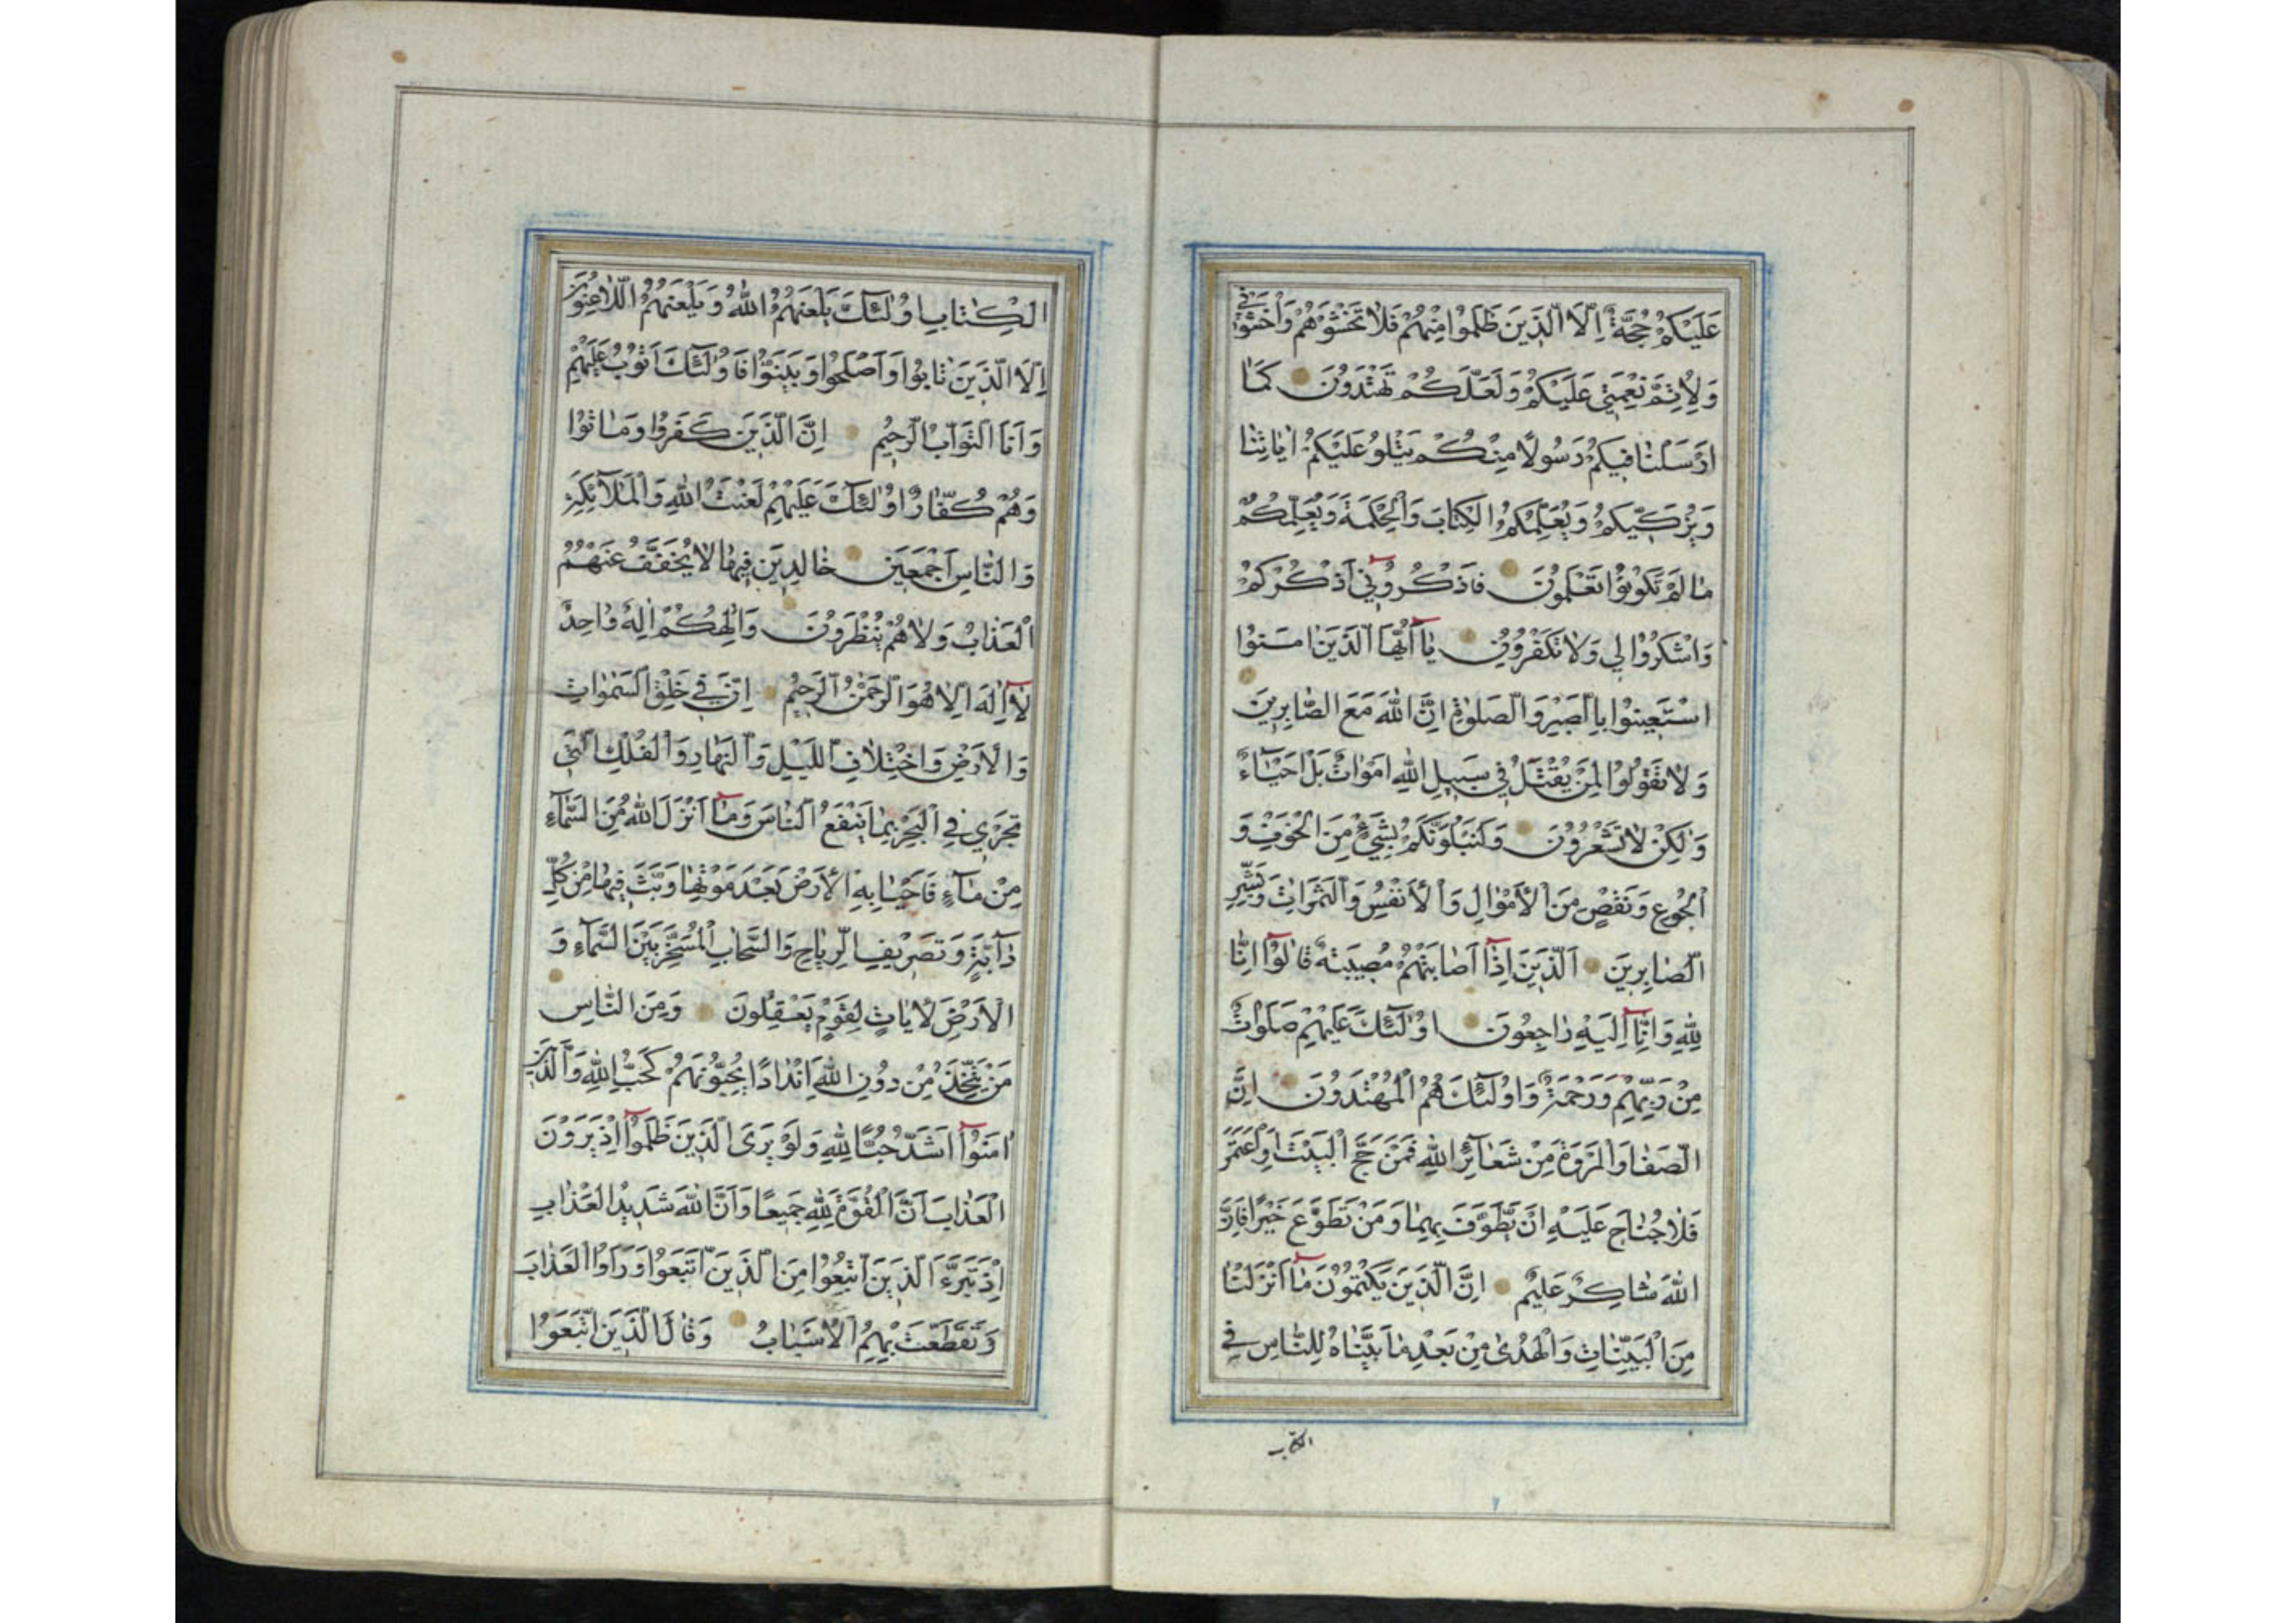 عَلَيْكُمْ حُجَّةٌ اِلَّا الَّذِينَ ظَلَمُوا مِنْهُمْ فَلَا تَخْشَوْهُمْ وَاخْشَوْنِي
وَلِاُتِمَّ نِعْمَتِي عَلَيْكُمْ وَلَعَلَّكُمْ تَهْتَدُونَ كَمَا
اَرْسَلْنَا فِيكُمْ رَسُولًا مِنْكُمْ يَتْلُو عَلَيْكُمْ اٰيَاتِنَا
وَيُزَكِّيكُمْ وَيُعَلِّمُكُمُ الْكِتَابَ وَالْحِكْمَةَ وَيُعَلِّمُكُمْ
مَا لَمْ تَكُونُوا تَعْلَمُونَ فَاذْكُرُونِي اَذْكُرْكُمْ
وَاشْكُرُوا لِي وَلَا تَكْفُرُونِ يَا اَيُّهَا الَّذِينَ اٰمَنُوا
اسْتَعِينُوا بِالصَّبْرِ وَالصَّلٰوةِ اِنَّ اللّٰهَ مَعَ الصَّابِرِينَ
وَلَا تَقُولُوا لِمَنْ يُقْتَلُ فِي سَبِيلِ اللّٰهِ اَمْوَاتٌ بَلْ اَحْيَاءٌ
وَلٰكِنْ لَا تَشْعُرُونَ وَلَنَبْلُوَنَّكُمْ بِشَيْءٍ مِنَ الْخَوْفِ وَ
الْجُوعِ وَنَقْصٍ مِنَ الْاَمْوَالِ وَالْاَنْفُسِ وَالثَّمَرَاتِ وَبَشِّرِ
الصَّابِرِينَ اَلَّذِينَ اِذَا اَصَابَتْهُمْ مُصِيبَةٌ قَالُوا اِنَّا
لِلّٰهِ وَاِنَّا اِلَيْهِ رَاجِعُونَ اُولٰئِكَ عَلَيْهِمْ صَلَوَاتٌ
مِنْ رَبِّهِمْ وَرَحْمَةٌ وَاُولٰئِكَ هُمُ الْمُهْتَدُونَ اِنَّ
الصَّفَا وَالْمَرْوَةَ مِنْ شَعَائِرِ اللّٰهِ فَمَنْ حَجَّ الْبَيْتَ اَوِاعْتَمَرَ
فَلَا جُنَاحَ عَلَيْهِ اَنْ يَطَّوَّفَ بِهِمَا وَمَنْ تَطَوَّعَ خَيْرًا فَاِنَّ
اللّٰهَ شَاكِرٌ عَلِيمٌ اِنَّ الَّذِينَ يَكْتُمُونَ مَا اَنْزَلْنَا
مِنَ الْبَيِّنَاتِ وَالْهُدٰى مِنْ بَعْدِ مَا بَيَّنَّاهُ لِلنَّاسِ فِي
الكتاب
الْكِتَابِ اُولٰئِكَ يَلْعَنُهُمُ اللّٰهُ وَيَلْعَنُهُمُ اللَّاعِنُونَ
اِلَّا الَّذِينَ تَابُوا وَاَصْلَحُوا وَبَيَّنُوا فَاُولٰئِكَ اَتُوبُ عَلَيْهِمْ
وَاَنَا التَّوَّابُ الرَّحِيمُ اِنَّ الَّذِينَ كَفَرُوا وَمَاتُوا
وَهُمْ كُفَّارٌ اُولٰئِكَ عَلَيْهِمْ لَعْنَتُ اللّٰهِ وَالْمَلٰئِكَةِ
وَالنَّاسِ اَجْمَعِينَ خَالِدِينَ فِيهَا لَا يُخَفَّفُ عَنْهُمُ
الْعَذَابُ وَلَا هُمْ يُنْظَرُونَ وَاِلٰهُكُمْ اِلٰهٌ وَاحِدٌ
لَا اِلٰهَ اِلَّا هُوَ الرَّحْمٰنُ الرَّحِيمُ اِنَّ فِي خَلْقِ السَّمٰوَاتِ
وَالْاَرْضِ وَاخْتِلَافِ اللَّيْلِ وَالنَّهَارِ وَالْفُلْكِ الَّتِي
تَجْرِي فِي الْبَحْرِ بِمَا يَنْفَعُ النَّاسَ وَمَا اَنْزَلَ اللّٰهُ مِنَ السَّمَاءِ
مِنْ مَاءٍ فَاَحْيَا بِهِ الْاَرْضَ بَعْدَ مَوْتِهَا وَبَثَّ فِيهَا مِنْ كُلِّ
دَابَّةٍ وَتَصْرِيفِ الرِّيَاحِ وَالسَّحَابِ الْمُسَخَّرِ بَيْنَ السَّمَاءِ وَ
الْاَرْضِ لَاٰيَاتٍ لِقَوْمٍ يَعْقِلُونَ وَمِنَ النَّاسِ
مَنْ يَتَّخِذُ مِنْ دُونِ اللّٰهِ اَنْدَادًا يُحِبُّونَهُمْ كَحُبِّ اللّٰهِ وَالَّذِينَ
اٰمَنُوا اَشَدُّ حُبًّا لِلّٰهِ وَلَوْ يَرَى الَّذِينَ ظَلَمُوا اِذْ يَرَوْنَ
الْعَذَابَ اَنَّ الْقُوَّةَ لِلّٰهِ جَمِيعًا وَاَنَّ اللّٰهَ شَدِيدُ الْعَذَابِ
اِذْ تَبَرَّءَ الَّذِينَ اتُّبِعُوا مِنَ الَّذِينَ اتَّبَعُوا وَرَاَوُا الْعَذَابَ
وَتَقَطَّعَتْ بِهِمُ الْاَسْبَابُ وَقَالَ الَّذِينَ اتَّبَعُوا